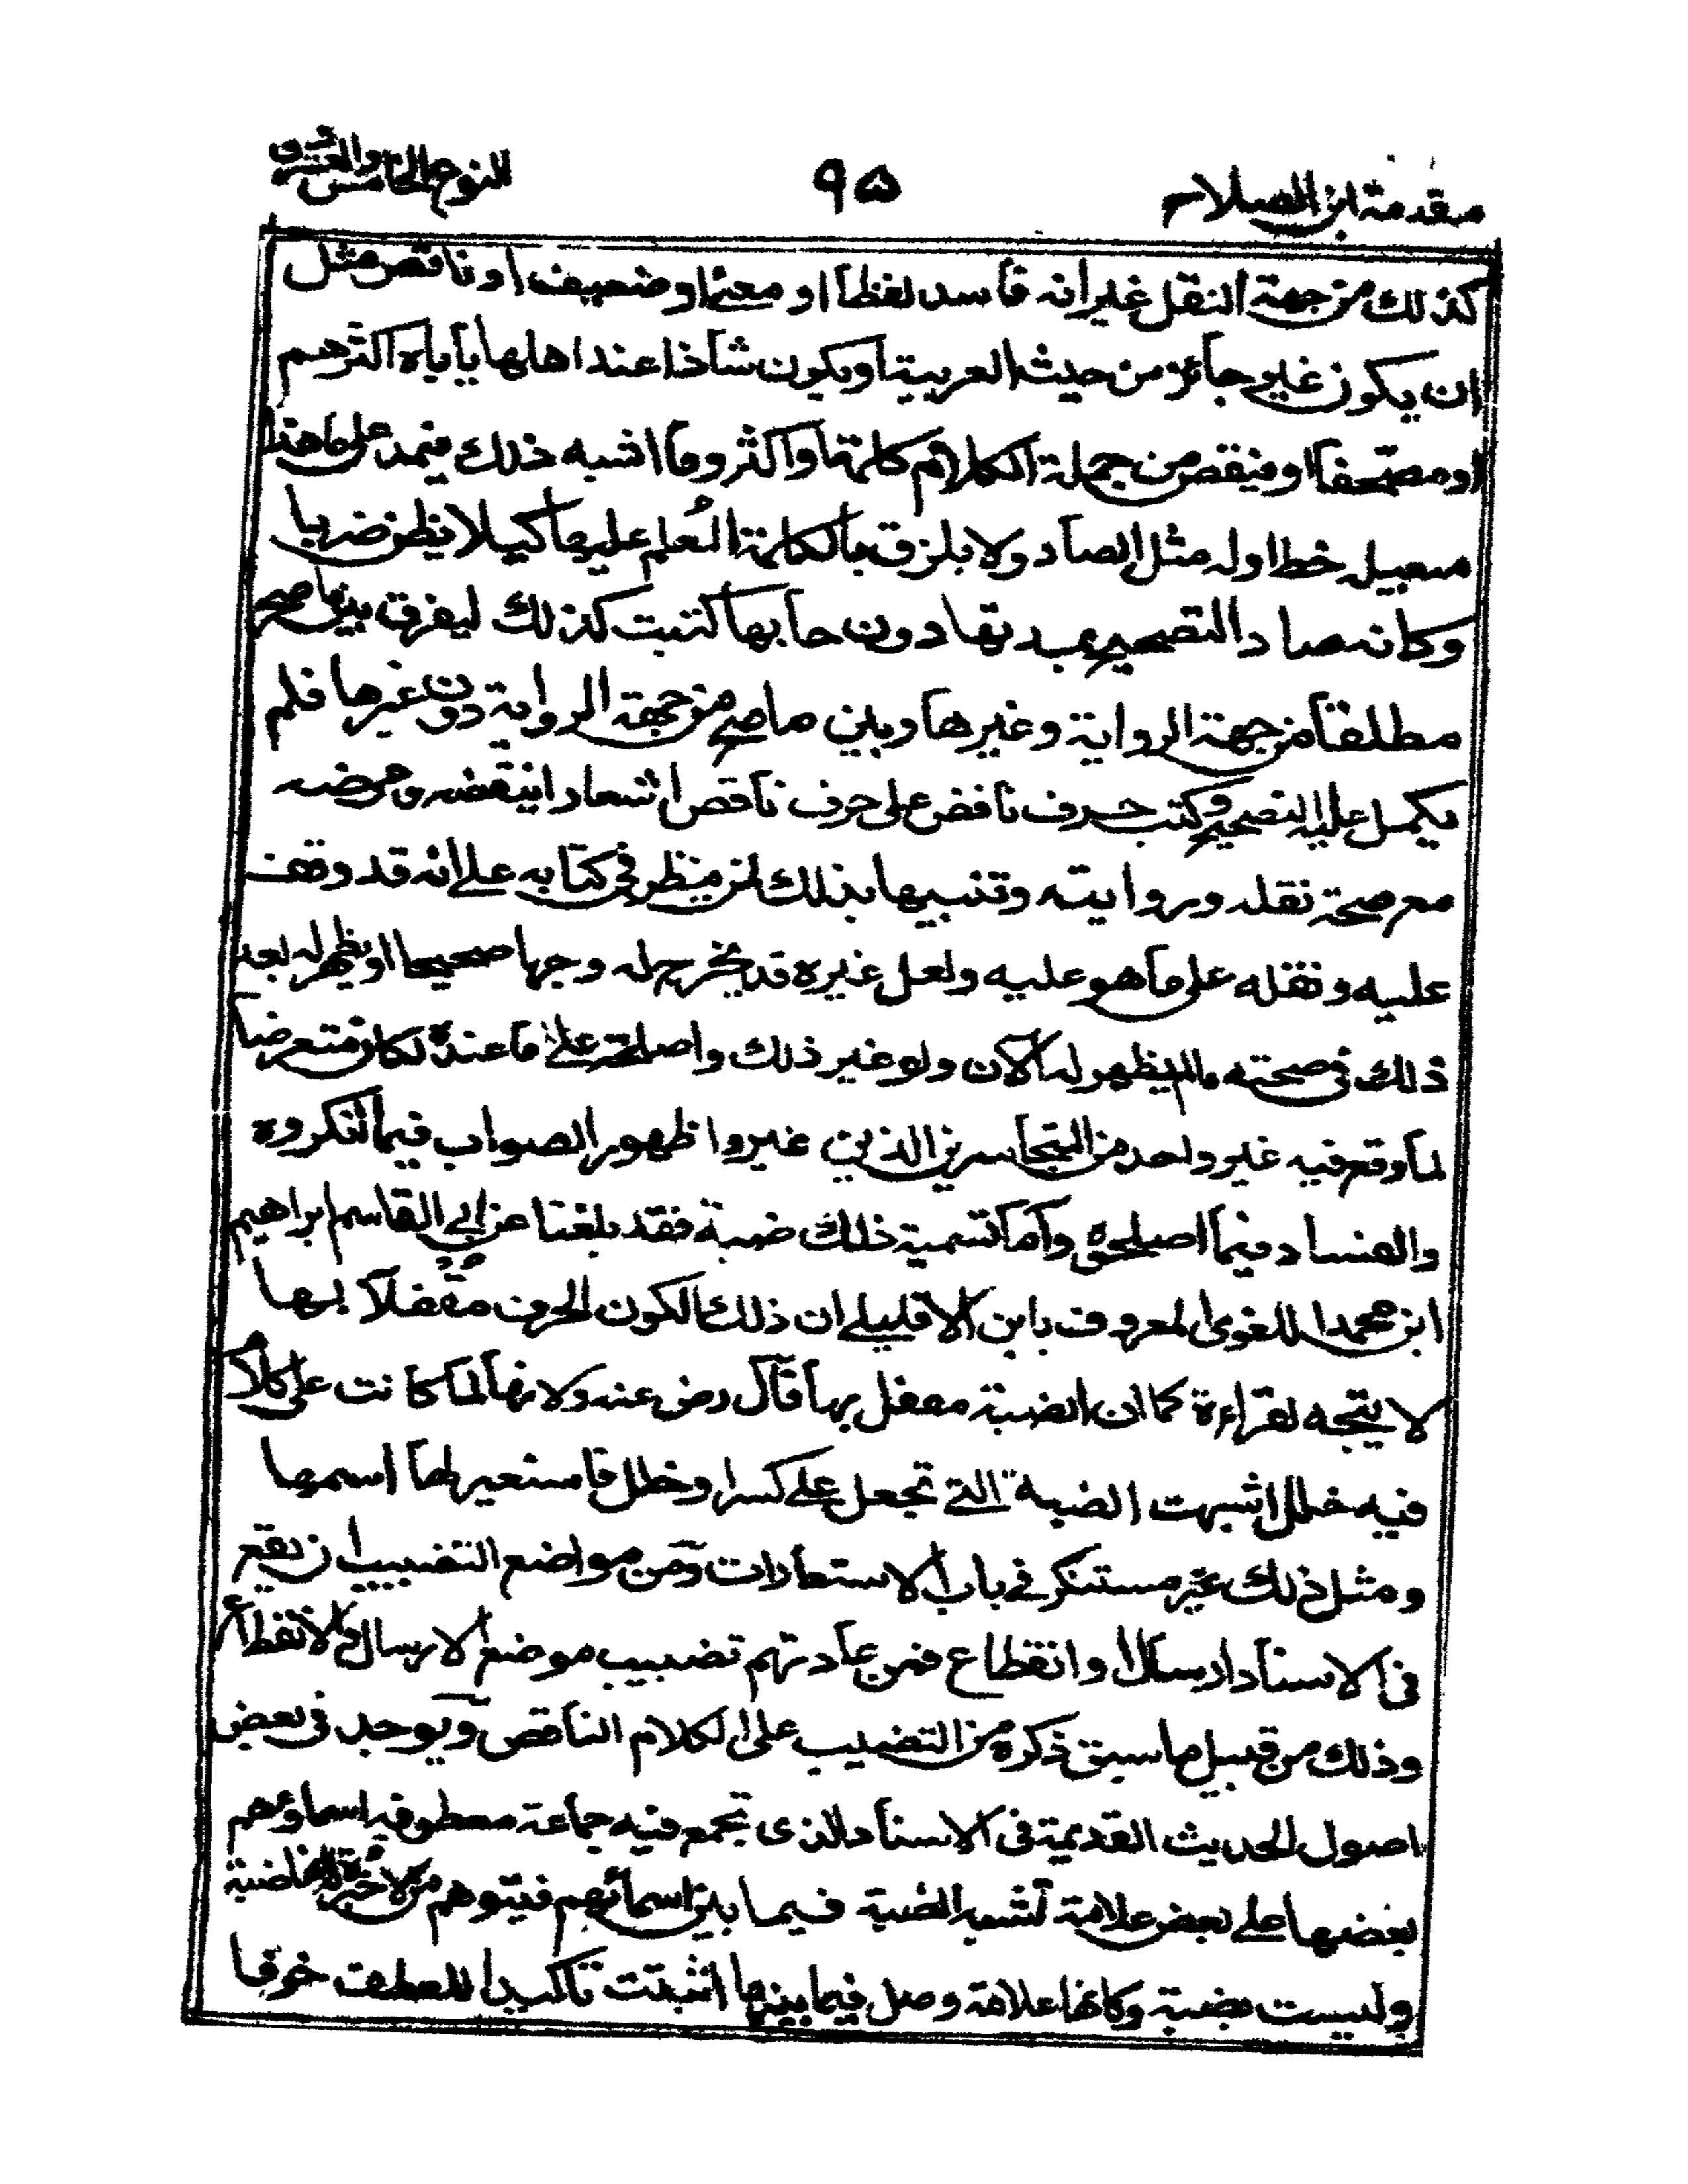 مقدمة ابن الصلاح
٩٥
النوع الخامس والعشرون
كذلك من جهة النقل غير انه فاسد لفظا او معنى او ضعيف او ناقص مثل
ان يكون غير جائز من حيث العربية او يكون شاذا عند اهلها يأباه اكثرهم
او مصحفا او ينقص من جملة الكلام كلمة او اكثر وما اشبه ذلك فيمد على ما هذا
سبيله خط اوله مثل الصاد ولا يلزق بالكلمة المعلم عليها كيلا يظن ضربا
وكانه صاد التصحيح بمدتها دون حائها كتبت كذلك ليفرق بين ما صح
مطلقا من جهة الرواية وغيرها وبين ما صح من جهة الرواية دون غيرها فلم
يكمل عليه التصحيح وكتب حرف ناقص على حرف ناقص اشعارا بنقصه ومرضه
مع صحة نقله وروايته وتنبيها بذلك لمن ينظر في كتابه على انه قد وقف
عليه ونقله على ما هو عليه ولعل غيره قد يخرج له وجها صحيحا او يظهر له بعد
ذلك في صحته ما لم يظهر له الآن ولو غير ذلك واصلحه على ما عنده لكان متعرضا
لما وقع فيه غير واحد من المتجاسرين الذين غيروا ظهور الصواب فيما انكروه
والفساد فيما اصلحوه واما تسمية ذلك ضبة فقد بلغنا عن ابي القاسم ابراهيم
ابن محمد اللغوى المعروف بابن الاقليلي ان ذلك لكون الحرف مقفلا بها
لا يتجه لقراءة كما ان الضبة مقفل بها قال رضى عنه ولانها لما كانت على كلام
فيه خلل اشبهت الضبة التي تجعل على كسر او خلل فاستعير لها اسمها
ومثل ذلك غير مستنكر في باب الاستعارات ومن مواضع التضبيب ان يقع
في الاسناد ارسال او انقطاع فمن عادتهم تضبيب موضع الارسال والانقطاع
وذلك من قبيل ما سبق ذكره من التضبيب على الكلام الناقص ويوجد في بعض
اصول الحديث القديمة في الاسناد الذى تجمع فيه جماعة معطوفة اسماؤهم
بعضها على بعض علامة تشبه الضبة فيما بين اسمائهم فيتوهم من لا خبرة له انها ضبة
وليست بضبة وكانها علامة وصل فيما بينها اثبتت تاكيدا للعطف خوفا